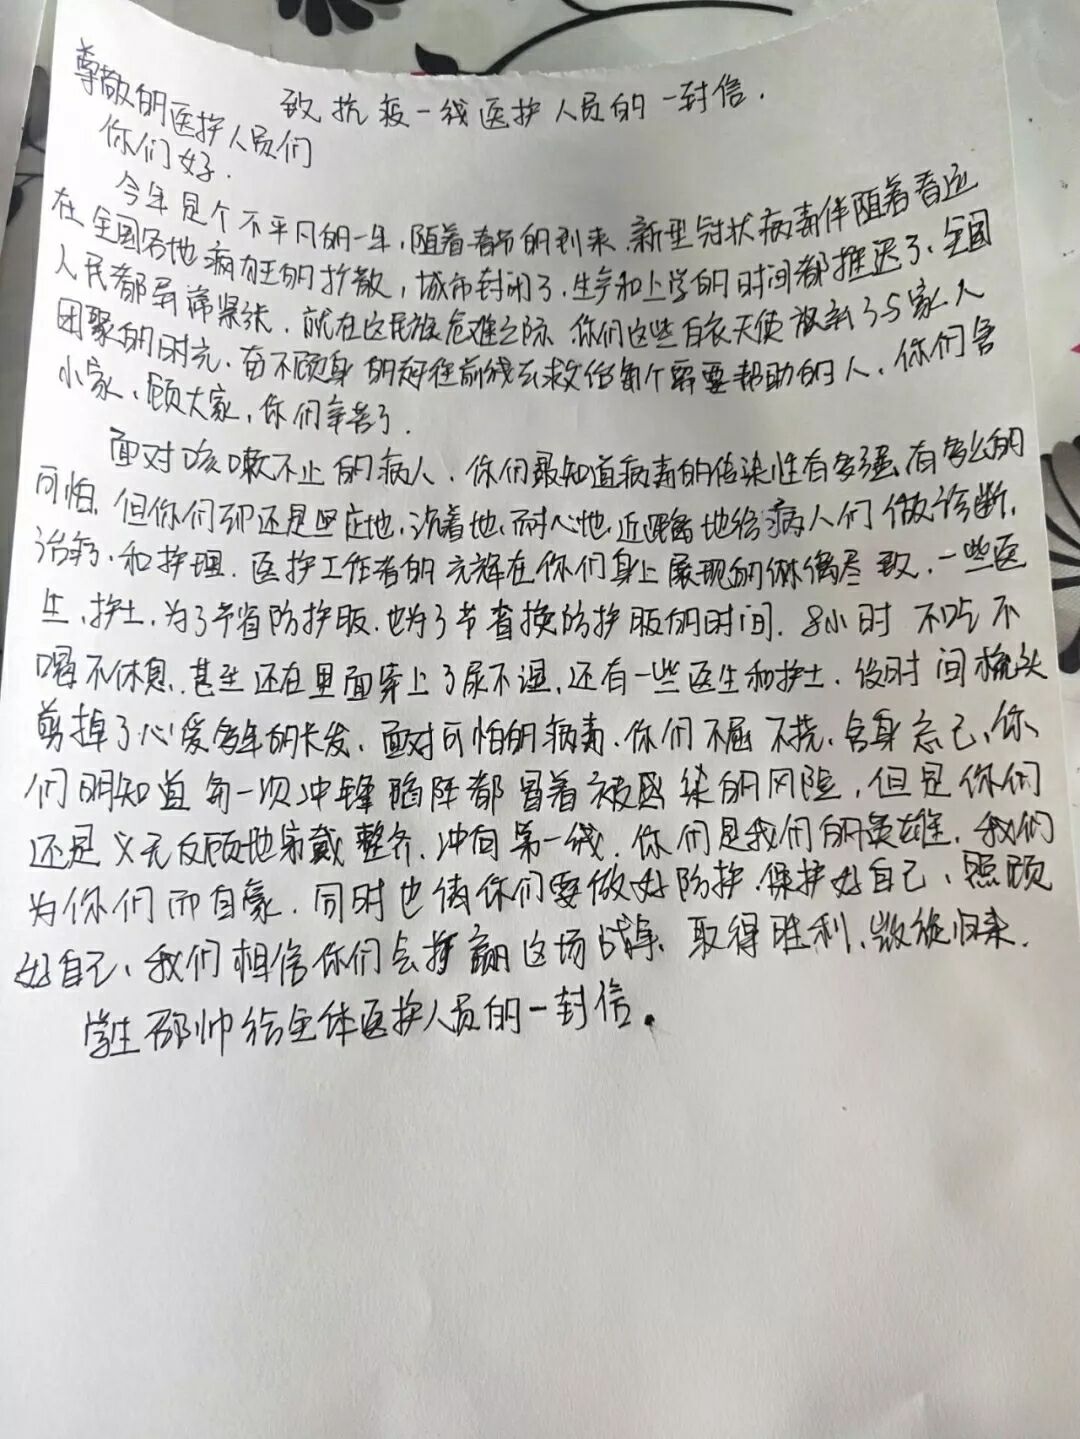 致抗疫一线医护人员的一封信.
尊敬的医护人员们
你们好.
今年是个不平凡的一年,随着春节的到来.新型冠状病毒伴随着春运
在全国各地疯狂的扩散,城市封闭了.生产和上学的时间都推迟了、全国
人民都异常紧张.就在这民族危难之际.你们这些白衣天使放弃了与家人
团聚的时光.奋不顾身的奔往前线去救治每个需要帮助的人.你们舍
小家、顾大家,你们辛苦了.
面对咳嗽不止的病人.你们最知道病毒的传染性有多强、有多么的
可怕.但你们却还是坚定地,沉着地,耐心地.近距离地给病人们做诊断.
治疗.和护理.医护工作者的光辉在你们身上展现的淋漓尽致.一些医
生、护士,为了节省防护服.也为了节省换防护服的时间.8小时不吃不
喝不休息.甚至还在里面穿上了尿不湿.还有一些医生和护士.没时间梳头
剪掉了心爱多年的长发.面对可怕的病毒.你们不屈不挠.舍身忘己,你
们明知道每一次冲锋陷阵都冒着被感染的风险,但是你们
还是义无反顾地穿戴整齐.冲向第一线.你们是我们的英雄.我们
为你们而自豪.同时也请你们要做好防护.保护好自己、照顾
好自己、我们相信你们会打赢这场战争、取得胜利、凯旋归来.
学生邵帅给全体医护人员的一封信.